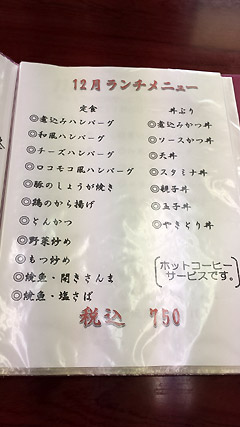 12月ランチメニュー
定食
◎煮込みハンバーグ
◎和風ハンバーグ
◎チーズハンバーグ
◎ロコモコ風ハンバーグ
◎豚のしょうが焼き
◎鶏のから揚げ
◎とんかつ
◎野菜炒め
◎もつ炒め
◎焼魚・開きさんま
◎焼魚・塩さば
丼ぶり
◎煮込みかつ丼
◎ソースかつ丼
◎天丼
◎スタミナ丼
◎親子丼
◎玉子丼
◎やきとり丼
ホットコーヒー
サービスです。
税込 750